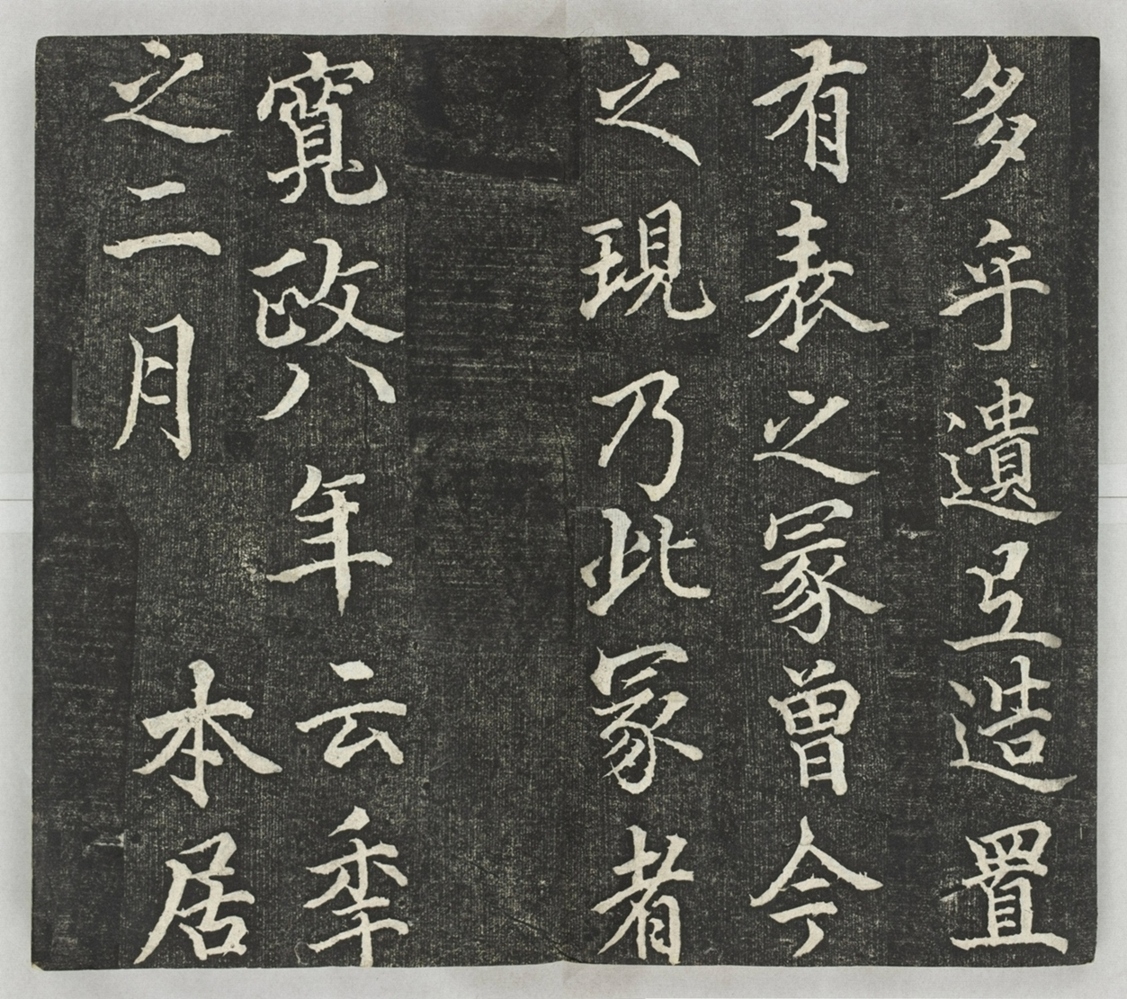 多乎遺弖造置
有表之冢曽今
之現乃此冢者
寛政八年云秊
之二月 本居